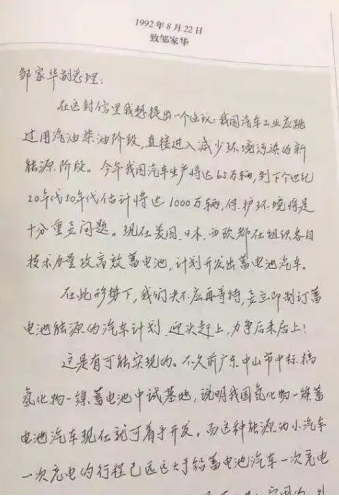 1992年8月22日
致邹家华
邹家华副总理：
在这封信里我想提出一个建议：我国汽车工业应跳
过用汽油柴油阶段，直接进入减少环境污染的新
能源阶段。今年我国汽车生产将达65万辆，到下个世纪
20年代30年代估计将达1000万辆，保护环境将是
十分重要问题。现在美国、日本、西欧都在组织各自
技术力量攻高效蓄电池，计划开发出蓄电池汽车。
在此形势下，我们决不应再等待，应立即制订蓄
电池能源的汽车计划，迎头赶上，力争后来居上！
这是有可能实现的。不久前广东中山市中标搞
氢化物一镍蓄电池中试基地，说明我国氢化物一镍蓄
电池汽车现在就可着手开发。而这种能源为小汽车
一次充电的行程已远远大于铅蓄电池汽车一次充电